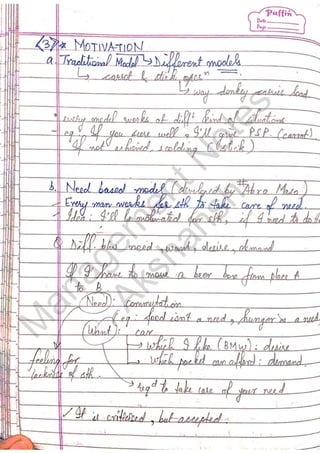 Puffin
Date
Page
<3> * MOTIVATION
a. Traditional Model → Different models
↳ carrot & stick apprn
↳ why donkey carries load
* every model works at difft kind of situations
- eg: If you score well, I'll give PSP. (carrot)
If not achieved, scolding (stick)
b. Need based model (developed by Abra Maso)
- Every man works for sth to take care of need.
- Idea: I'll be motivated for sth, if I need to do it
Q Diff. b/w need, want, desire, demand
If I have to move a beer box from place A
to B
(Need): commutation
(eg: food isn't a need, hunger is a need
(Want): car
↳ which I like (BMW): desire
↳ which pocket can afford: demand
feeling for
lackness of sth.
→ reqd to take care of your need
✓ It is criticized, but accepted.
Management Notes
Akshansh